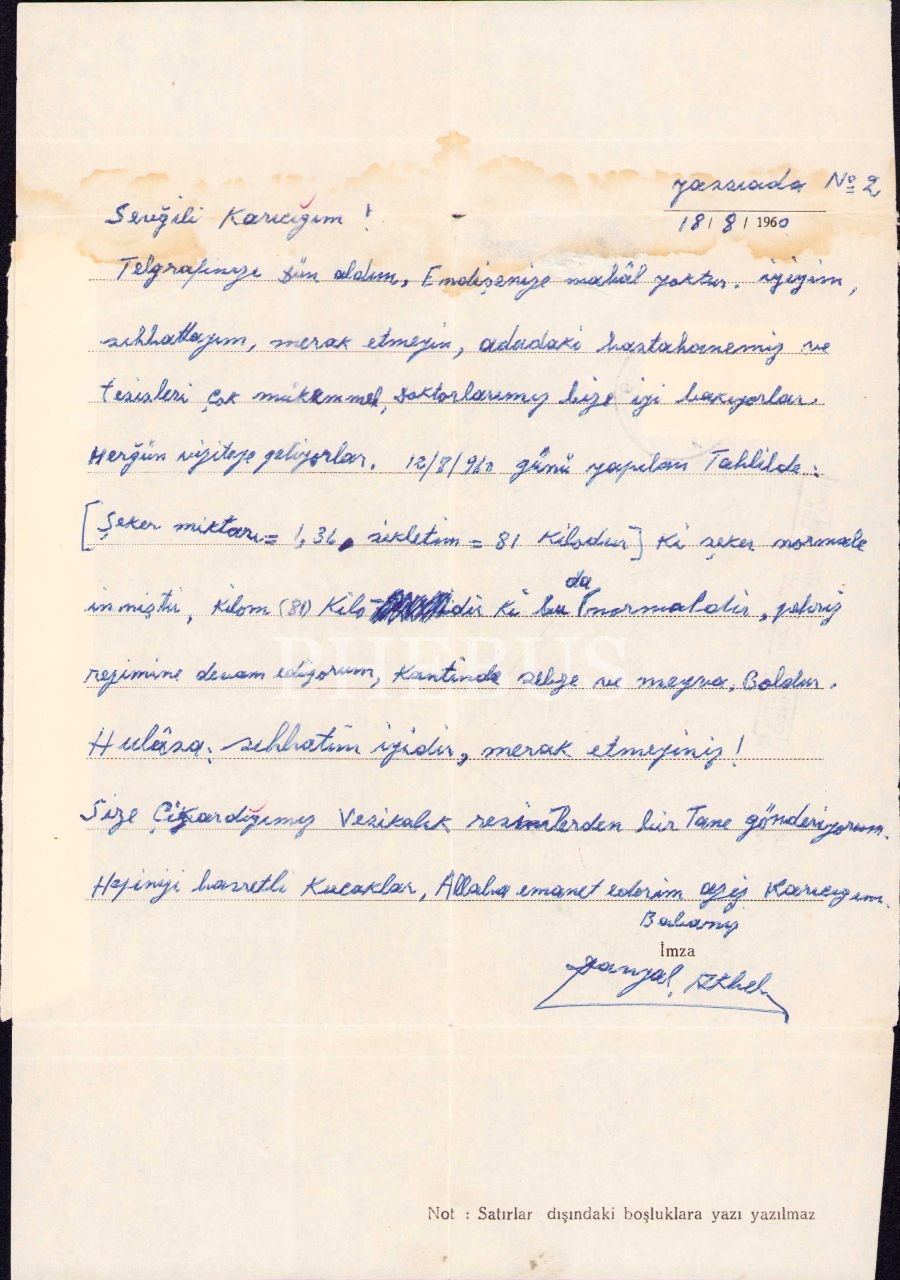 Yassıada № 2
Sevğili Karıcığım !
18 / 8 / 1960
Telgrafınızı Dün aldım, Endişenize mahâl yoktur. iyiyim,
sıhhattayım, merak etmeyin, adadaki hastahanemiz ve
tesisleri çok mükemmel, Doktorlarımız bize iyi bakıyorlar.
Herğün viziteye geliyorlar. 12/8/960 günü yapılan Tahlilde:
[Şeker miktarı = 1,36, sikletim = 81 Kilodur] Ki şeker normale
inmiştir, Kilom (81) Kilo idir Ki bu da normaldir, perhiz
rejimine devam ediyorum, Kantinde sebze ve meyva, Boldur.
Hulâsa: sıhhatim iyidir, merak etmeyiniz !
Size Çığardığımız Vesikalık resimlerden bir Tane gönderiyorum.
Hepinizi hasretli Kucaklar, Allaha emanet ederim aziz Karıcığım.
Babanız
İmza
Danyal Akbel
PHEBUS
Not : Satırlar dışındaki boşluklara yazı yazılmaz